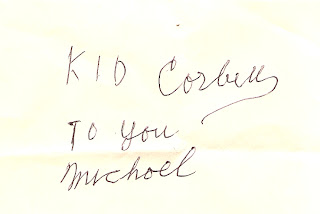 KID Corbett
To You
Michael